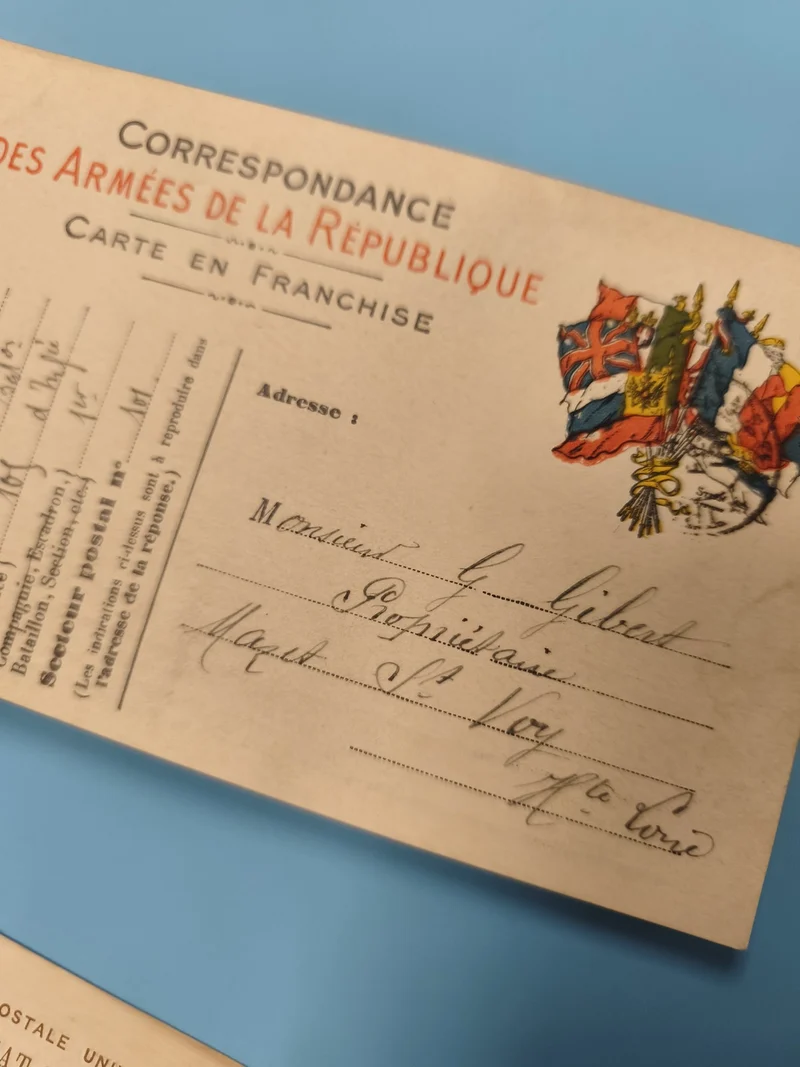 CORRESPONDANCE
DES ARMÉES DE LA RÉPUBLIQUE
CARTE EN FRANCHISE
105
1er
Compagnie, Escadron,
Bataillon, Section, etc.
Secteur postal no 101
(Les indications ci-dessus sont à reproduire dans
l'adresse de la réponse.)
Adresse :
Monsieur G Gibert
Propriétaire
Mazet St Voy
Hte Loire
OSTALE UNI